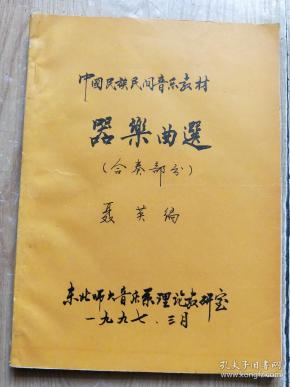 中國民族民间音乐教材
器樂曲選
(合奏部分)
聂英编
东北师大音乐系理论教研室
一九九七.三月
孔夫子旧书网